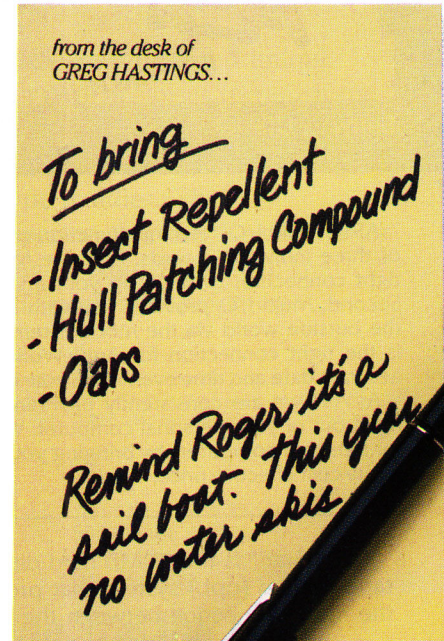 from the desk of
GREG HASTINGS...
To bring
- Insect Repellent
- Hull Patching Compound
- Oars
Remind Roger it's a
sail boat. This year
no water skis